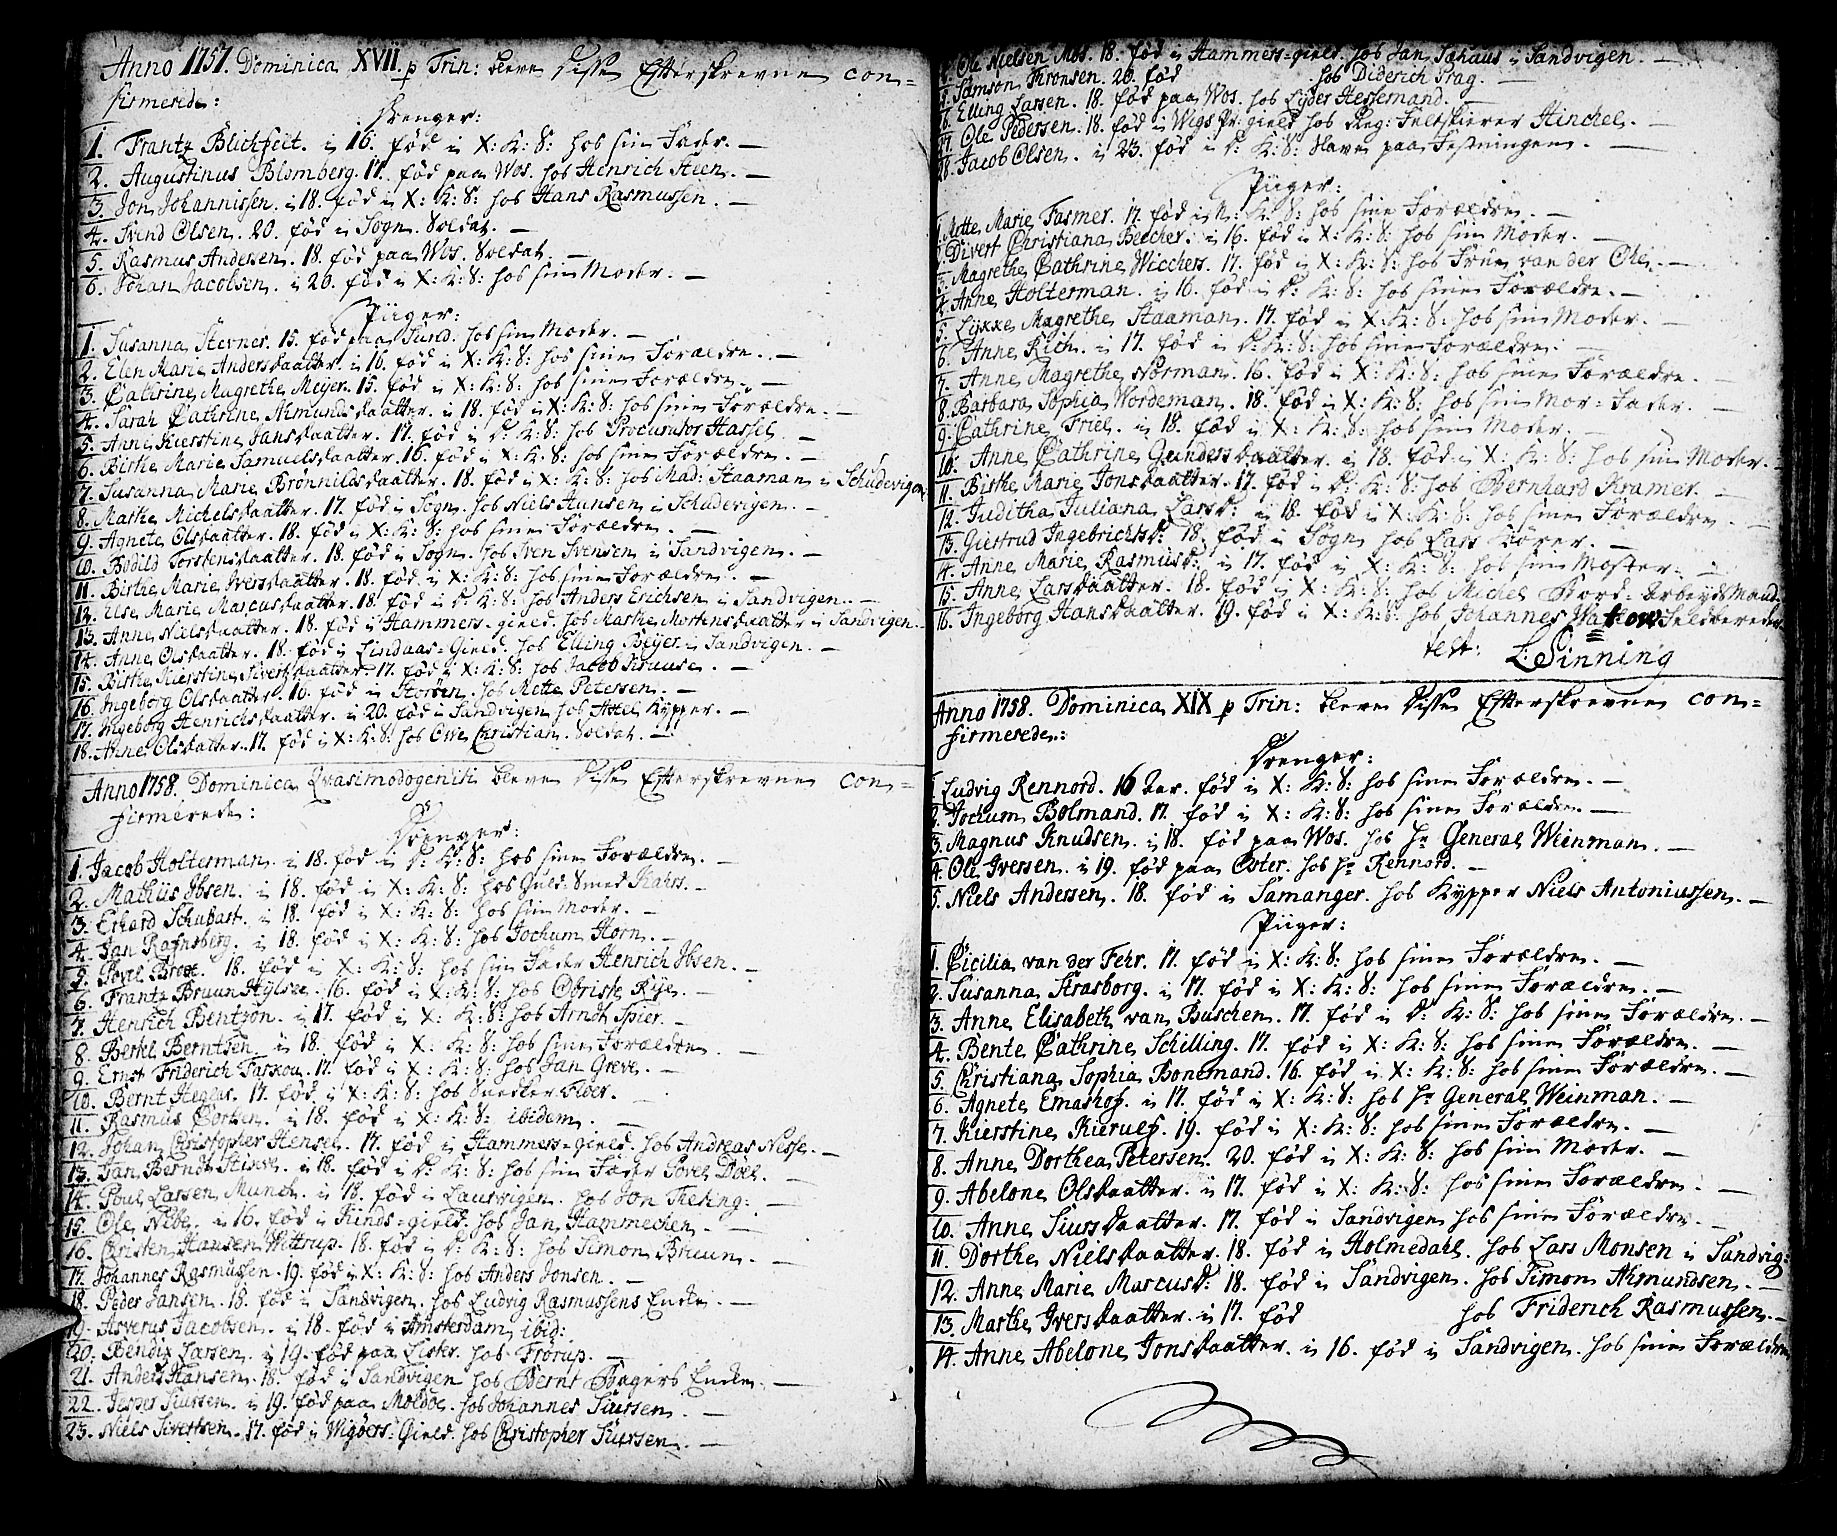 Anno 1757. Dominica XVII p Trin: bleve disse Effterskrevne con=
firmerede:
Drenger:
1. Frantz Blichfelt. i 16. fød i X: K: S: hos sin Fader. —
2. Augustinus Blomberg. 17. fød paa Wos. hos Henrich Steen. —
3. Jon Johannissen. i 18. fød i X: K: S: hos Hans Rasmussen. —
4. Svend Olsen. 20. fød i Sogn. Soldat. —
5. Rasmus Andersen. 18. fød paa Wos. Soldat. —
6. Johan Jacobsen. i 20. fød i X: K: S: hos sin Moder. —
Piiger:
1. Susanna Stevner. 15. fød paa Sund. hos sin Moder. —
2. Elen Marie Andersdaatter. i 16. fød i X: K: S: hos sine Forældre. —
3. Cathrine Magrethe Meyer. 15. fød i X: K: S: hos sine Forældre. —
4. Sarah Cathrine Asmundsdaatter. i 18. fød i X: K: S: hos sine Forældre. —
5. Anne Kierstine Jansdaatter. 17. fød i D: K: S: hos Procurator Hassel —
6. Birthe Marie Samuelsdaatter. 16. fød i X: K: S: hos sine Forældre. —
7. Susanna Marie Brönnilsdaatter. 18. fød i X: K: S: hos Mad: Staaman i Schudevigen
8. Marthe Michelsdaatter. 17. fød i Sogn. hos Niels Hansen i Schudevigen. —
9. Agnete Olsdaatter. 18. fød i X: K: S: hos sine Forældre. —
10. Bodild Torstensdaatter. 18. fød i Sogn. hos Sven Svensen i Sandvigen. —
11. Birthe Marie Iversdaatter. 18. fød i X: K: S: hos sine Forældre. —
12. Else Marie Marcusdaatter. 18. fød i D: K: S: hos Anders Erichsen i Sandvigen. —
13. Anne Nielsdaatter. 18. fød i Hammers=gield. hos Marthe Mortensdaatter i Sandvigen.
14. Anne Olsdaatter. 18. fød i Lindaas=Gield. hos Elling Beyer i Sandvigen. —
15. Birthe Kierstine Sivertsdaatter. 17. fød i X: K: S: hos Jacob Kruuse. —
16. Ingeborg Olsdaatter. 16. fød i Storöen. hos Mette Petersen. —
17. Ingeborg Henrichsdaatter. i 20. fød i Sandvigen hos Kypper. —
18. Anne Olsdatter. 17. fød i X: K: S: hos Ove Christian. Soldat. —
Anno 1758. Dominica Qvasimodogeniti bleve disse Effterskrevne con=
firmerede:
Drenger:
1. Jacob Holterman. i 18. fød i D: K: S: hos sine Forældre. —
2. Mathiis Ibsen. i 18. fød i X: K: S: hos Guld=Smed Rahrs. —
3. Erhard Schubart. i 18. fød i X: K: S: hos sin Moder. —
4. Jan Rafnsberg. i 18. fød i X: K: S: hos Jochum Horn. —
5. Povel Brose. 18. fød i X: K: S: hos sin Fader Henrich Ibsen. —
6. Frantz Bruun Hylsee. 16. fød i X: K: S: hos Obriste Rye. —
7. Henrich Bentzon. i 17. fød i X: K: S: hos Arndt Spier. —
8. Berhel Berntsen. i 18. fød i X: K: S: hos sine Forældre. —
9. Ernst Friderich Tarkou. 17. fød i X: K: S: hos Jan Greve. —
10. Bernt Heglas. 17. fød i X: K: S: hos Snedker Fiber. —
11. Rasmus Corken. i 18. fød i X: K: S: ibidem. —
12. Johan Christopher Hensel. 17. fød i Hammers=gield. hos Andreas Nisse. —
13. Jan Berndt Stinve. i 18. fød i D: K: S: hos sin Fader Povel Doel. —
14. Poul Larsen Munch. i 18. fød i Laurvigen. hos Jon Theting: —
15. Ole Nibe. i 16. fød i Finds=gield. hos Jan Hammechen. —
16. Christen Hansen Wittrup. 18. fød i D: K: S: hos Simon Bruun. —
17. Johannes Rasmussen. 19. fød i X: K: S: hos Anders Jonsen. —
18. Peder Jansen. 18. fød i Sandvigen. hos Ludvig Rasmussens Enke. —
19. Asverus Jacobsen. i 18. fød i Amsterdam ibid:
20. Bendix Larsen. i 19. fød paa Lister. hos Frörup. —
21. Anders Hansen. 18. fød i Sandvigen hos Bernt Bagers Enke. —
22. Jesper Siursen. i 19. fød paa Moldöe. hos Johannes Siursen. —
23. Niels Sivertsen. 17. fød i Wigöers=Gield. hos Christopher Siursen. —
Ole Nielsen Mos. 18. fød i Hammers=gield. hos Jan Sahaus i Sandvigen. —
Samson Thronsen. 20. fød hos Diderich Prag. —
26. Elling Larsen. 18. fød paa Wos. hos Lyder Hessemand. —
27. Ole Pedersen. 18. fød i Wigs Pr: gield hos Reg: Feltskierer Hinchel. —
28. Jacob Olsen. i 23. fød i D: K: S: Slave paa Festningen. —
Piiger:
1. Mette Marie Fasmer. 17. fød i N: K: S: hos sine Forældre. —
2. Divert Christiana Beecher. i 16. fød i X: K: S: hos sin Moder. —
3. Magrethe Cathrine Wicchers. 17. fød i X: K: S: hos Frue van der Ole. —
4. Anne Holterman. i 16. fød i D: K: S: hos sine Forældre. —
5. Lykke Magrethe Staaman. 17. fød i X: K: S: hos sin Moder. —
6. Anne Rich. i 17. fød i D: K: S: hos sine Forældre. —
7. Anne Magrethe Norman. 16. fød i X: K: S: hos sine Forældre. —
8. Barbara Sophia Wordeman. 18. fød i X: K: S: hos sin Mor=Fader. —
9. Cathrine Friel. i 18. fød i X: K: S: hos sin Moder. —
10. Anne Cathrine Gundersdaatter. i 18. fød i X: K: S: hos sin Moder.
11. Birthe Marie Jonsdaatter. 17. fød i D: K: S: hos Bernhard Kramer. —
12. Juditha Juliana Larsd: i 18. fød i X: K: S: hos sine Forældre. —
13. Giertrud Ingebrichtsd: 18. fød i Sogn hos Lars Börer. —
14. Anne Marie Rasmusd: i 17. fød i X: K: S: hos sin Moster. —
15. Anne Larsdaatter. 18. fød i X: K: S: hos Michel Bord. Arbeyds Mand.
16. Ingeborg Hansdaatter. 19. fød i X: K: S: hos Johannes Seldbereder
test: L: Sinning
Anno 1758. Dominica XIX p Trin: bleve disse Effterskrevne con=
firmerede:
Drenger:
1. Ludvig Rennord. 16 aar. fød i X: K: S: hos sine Forældre. —
2. Jochum Bolmand. 17. fød i X: K: S: hos sine Forældre. —
3. Magnus Knudsen. i 18. fød paa Wos. hos Hr General Weinman. —
4. Ole Iversen. i 19. fød paa Oster. hos Hr Rennord. —
5. Niels Andersen. 18. fød i Samanger. hos Kypper Niels Antoniussen. —
Piiger:
1. Cicilia van der Fehr. 17. fød i X: K: S: hos sine Forældre. —
2. Susanna Strasborg. i 17. fød i X: K: S: hos sine Forældre. —
3. Anne Elisabeth van Buschen. 17. fød i D: K: S: hos sine Forældre. —
4. Bente Cathrine Schilling. 17. fød i X: K: S: hos sine Forældre. —
5. Christiana Sophia Bonemand. 16. fød i X: K: S: hos sine Forældre. —
6. Agnete Emashof. i 17. fød i X: K: S: hos Hr General Weinman. —
7. Kierstine Kierulf. 19. fød i X: K: S: hos sine Forældre. —
8. Anne Dorthea Petersen. 20. fød i X: K: S: hos sin Moder. —
9. Abelone Olsdaatter. i 17. fød i X: K: S: hos sine Forældre. —
10. Anne Siursdaatter. 17. fød i Sandvigen hos sine Forældre. —
11. Dorthe Nielsdaatter. 18. fød i Holmedahl. hos Lars Monsen i Sandvig:
12. Anne Marie Marcusd: 18. fød i Sandvigen. hos Simon Asmundsen. —
13. Marthe Iversdaatter. i 17. fød hos Friderich Rasmussen. —
14. Anne Abelone Jonsdaatter. i 16. fød i Sandvigen. hos sine Forældre